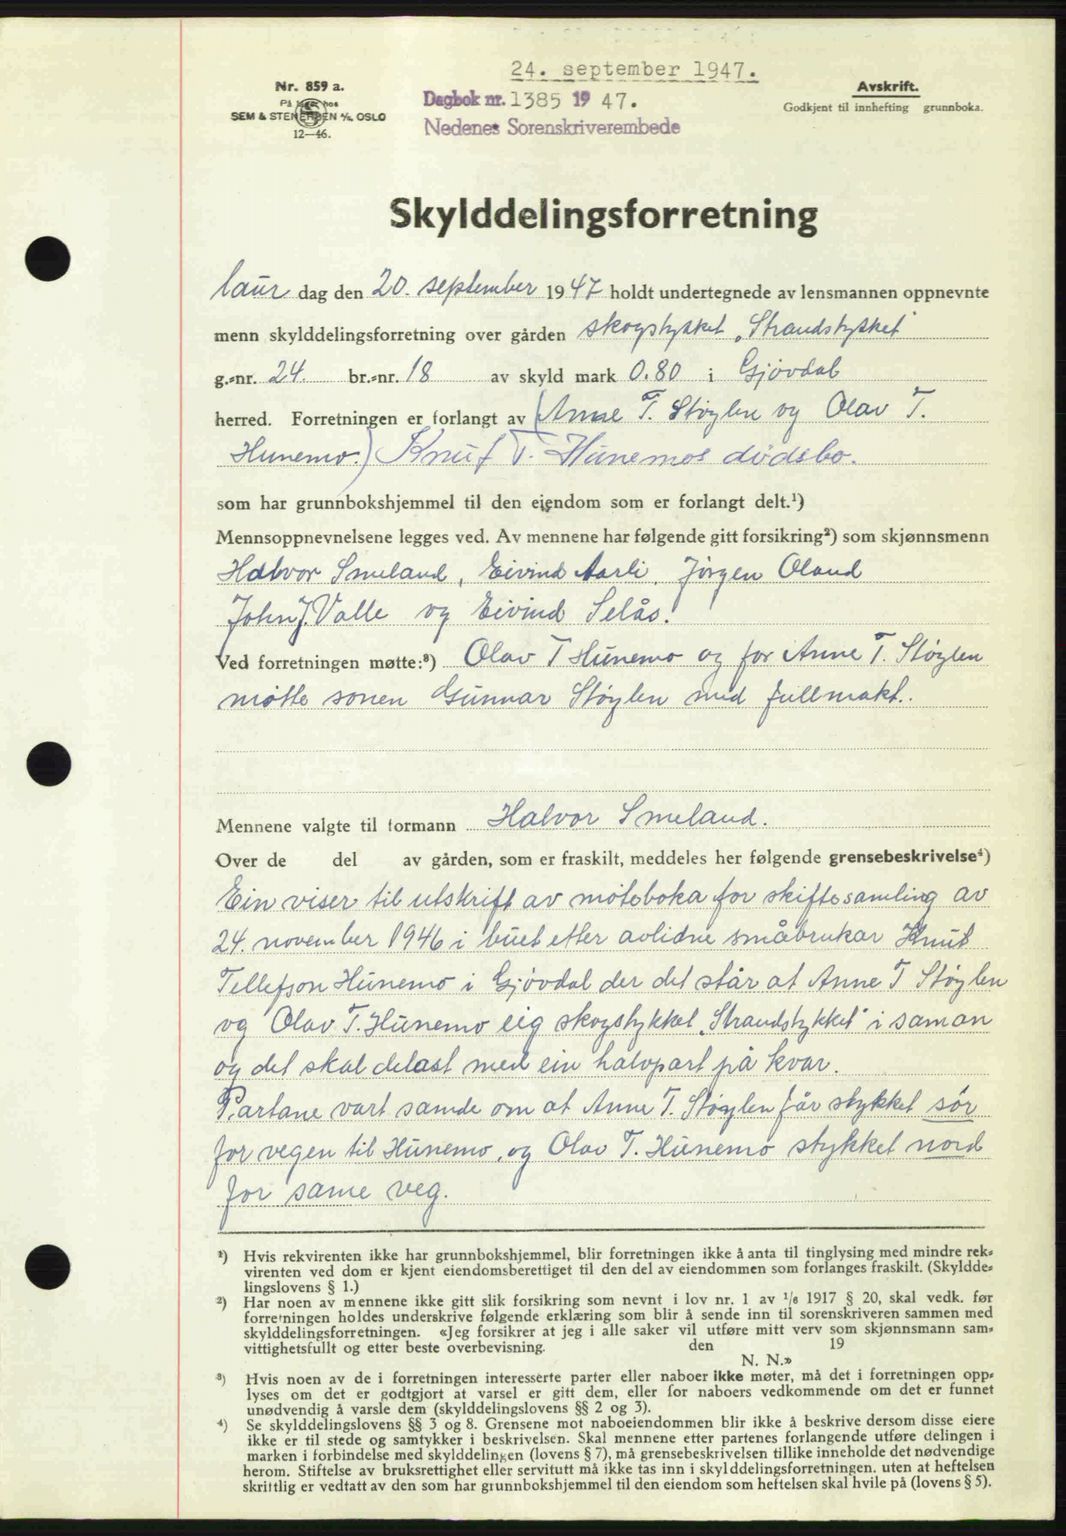 24. september 1947.
Nr. 859 a.
På lager hos
SEM & STENERSEN A/S, OSLO
12—46.
Dagbok nr. 1385 19 47.
Nedenes Sorenskriverembede
Avskrift.
Godkjent til innhefting grunnboka.
Skylddelingsforretning
laur dag den 20. september 1947 holdt undertegnede av lensmannen oppnevnte
menn skylddelingsforretning over gården skogstykket „Strandstykket"
g.-nr. 24. br.-nr. 18 av skyld mark 0.80 i Gjövdal
herred. Forretningen er forlangt av (Anne T. Stöylen og Olav T.
Hunemo.) Knut T. Hunemos dödsbo.
som har grunnbokshjemmel til den eiendom som er forlangt delt.¹)
Mennsoppnevnelsene legges ved. Av mennene har følgende gitt forsikring²) som skjønnsmenn
Halvor Smeland, Eivind Aarli, Jörgen Oland
John J. Valle og Eivind Selås.
Ved forretningen møtte:³) Olav T Hunemo og for Anne T. Støylen
møtte sonen Gunnar Støylen med fullmakt.
Mennene valgte til formann Halvor Smeland.
Over de del av gården, som er fraskilt, meddeles her følgende grensebeskrivelse⁴)
Ein viser til utskrift av møteboka for skiftesamling av
24. november 1946 i buet etter avlidne småbrukar Knut
Tellefson Hunemo i Gjövdal der det står at Anne T Støylen
og Olav T. Hunemo eig skogstykket „Strandstykket" i saman
og det skal delast med ein halvpart på kvar.
Partane vart samde om at Anne T. Støylen får stykket sør
for vegen til Hunemo, og Olav T. Hunemo stykket nord
for same veg.
¹) Hvis rekvirenten ikke har grunnbokshjemmel, blir forretningen ikke å anta til tinglysing med mindre rek-
virenten ved dom er kjent eiendomsberettiget til den del av eiendommen som forlanges fraskilt. (Skyldde-
lingslovens § 1.)
²) Har noen av mennene ikke gitt slik forsikring som nevnt i lov nr. 1 av ¹/₆ 1917 § 20, skal vedk. før
forretningen holdes underskrive følgende erklæring som blir å sende inn til sorenskriveren sammen med
skylddelingsforretningen. «Jeg forsikrer at jeg i alle saker vil utføre mitt verv som skjønnsmann sam-
vittighetsfullt og etter beste overbevisning. den 19
N. N.»
³) Hvis noen av de i forretningen interesserte parter eller naboer ikke møter, må det i forretningen opp-
lyses om det er godtgjort at varsel er gitt dem, eller for naboers vedkommende om det er funnet
unødvendig å varsle dem (skylddelingslovens §§ 2 og 3).
⁴) Se skylddelingslovens §§ 3 og 8. Grensene mot naboeiendommen blir ikke å beskrive dersom disse eiere
ikke er til stede og samtykker i beskrivelsen. Skal mennene etter partenes forlangende utføre delingen i
marken i forbindelse med skylddelingen (lovens § 7), må grensebeskrivelsen tillike inneholde det nødvendige
herom. Stiftelse av bruksrettighet eller servitutt må ikke tas inn i skylddelingsforretningen. uten at heftelsen
skriftlig er vedtatt av den som har grunnbokshjemmel til den eiendom som heftelsen skal hvile på (lovens § 5).